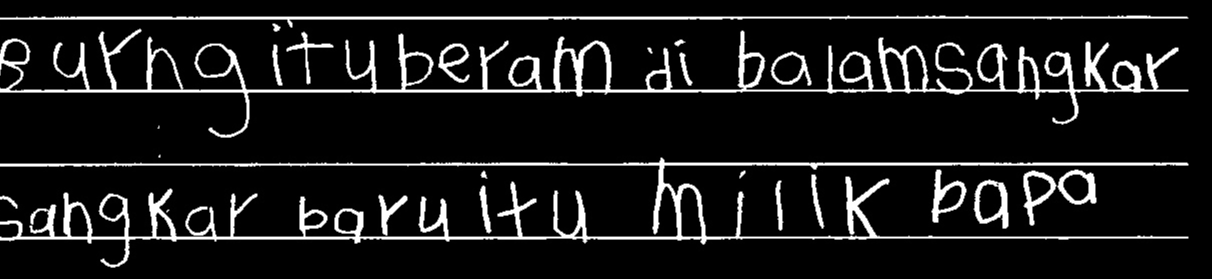 Burng ituberam di balamsangkar
sangkar baru itu milik bapa